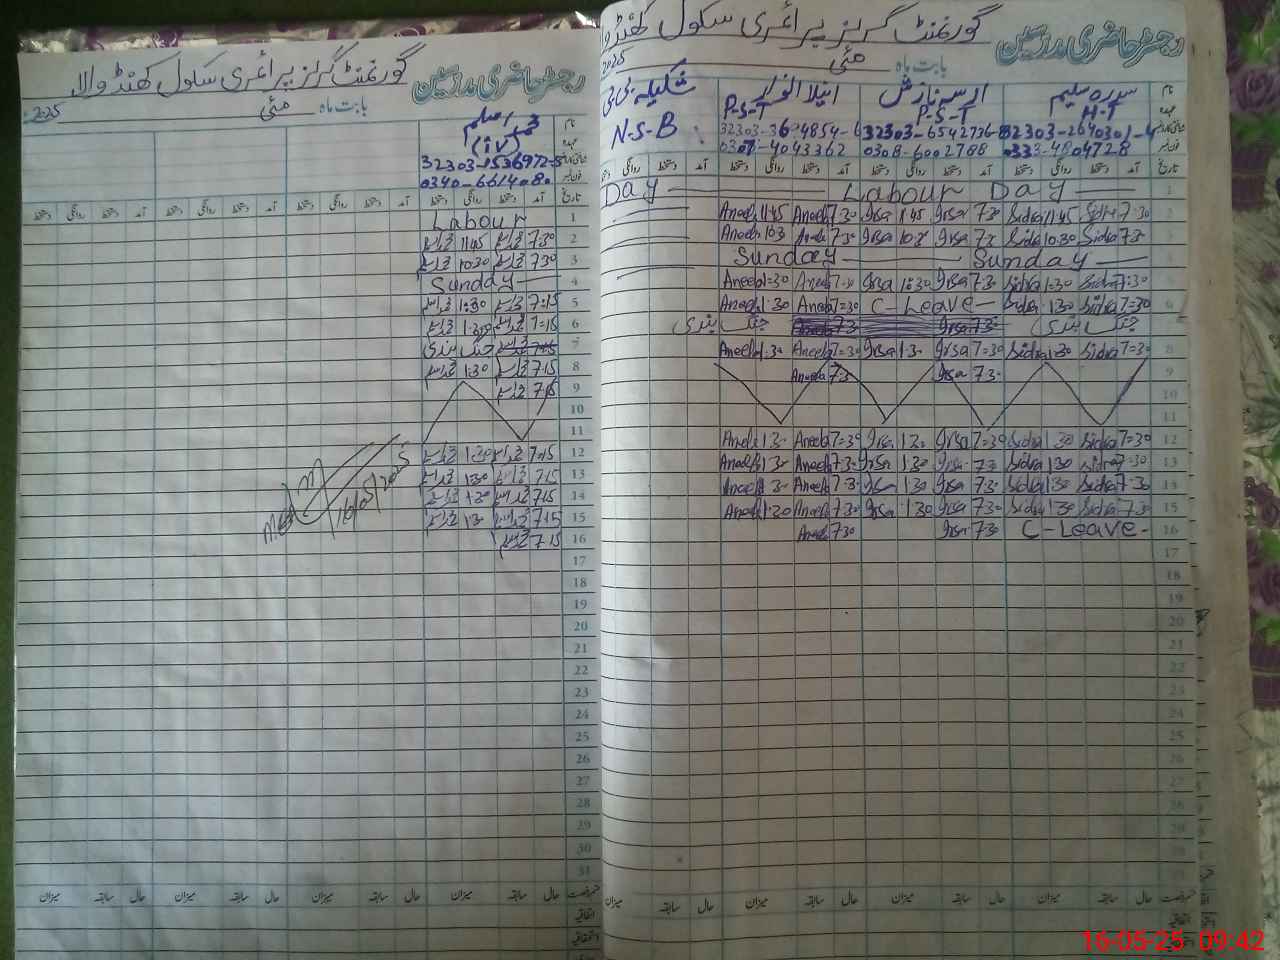 رجسٹر حاضری مدرسین گورنمنٹ گرلز پرائمری سکول کھنڈ والا
بابت ماہ مئی 2025
نام سدرہ سلیم ارسہ نازش انیلا شکیلہ بی بی
H-T P-S-T P-S-T N-S-B
32303-2640301-4 32303-6542736-8 32303-3604854-6
0333-4804728 0308-6002788 0307-4043362
تاریخ آمد دستخط روانگی دستخط آمد دستخط روانگی دستخط آمد دستخط روانگی دستخط آمد
1 Labour Day Day
2 Sidra 7:30 Sidra 11:45 Irsa 7:30 Irsa 11:45 Aneela 7:30 Aneela 11:45
3 Sidra 7:30 Sidra 10:30 Irsa 7:3 Irsa 10:3 Aneela 7:30 Aneela 10:3
4 Sunday Sunday
5 Sidra 7:30 Sidra 1:30 Irsa 7:3 Irsa 1:30 Aneela 7:30 Aneela 1:30
6 Sidra 7=30 Sidra 1:30 C-Leave Aneela 7=30 Aneela 1:30
جنگ بندی Irsa 7:3 Aneela 7:3 جنگ بندی
8 Sidra 7=30 Sidra 1:30 Irsa 7=30 Irsa 1:3 Aneela 7=30 Aneela 1:30
9 Irsa 7:3 Aneela 7:3
10
11
12 Sidra 7=30 Sidra 1:30 Irsa 7=30 Irsa 1:30 Aneela 7=30 Aneela 1:3
13 Sidra 7:30 Sidra 1:30 Irsa 7:3 Irsa 1:30 Aneela 7:30 Aneela 1:30
14 Sidra 7:30 Sidra 1:30 Irsa 7:3 Irsa 1:30 Aneela 7:3 Aneela 1:3
15 Sidra 7:30 Sidra 1:30 Irsa 7:30 Irsa 1:30 Aneela 7:30 Aneela 1:30
16 C-Leave Irsa 7:30 Aneela 7:30
17
18
19
20
21
22
23
24
25
26
27
28
29
میزان سابقہ حال میزان سابقہ حال میزان سابقہ حال میزان
رجسٹر حاضری مدرسین گورنمنٹ گرلز پرائمری سکول کھنڈ والا
بابت ماہ مئی 2025
نام
(iv)
32303-1536972-5
0340-6614080
تاریخ آمد دستخط روانگی دستخط آمد دستخط روانگی دستخط آمد دستخط روانگی دستخط آمد دستخط روانگی دستخط
1 Labour
2 7:30 11:45
3 7:30 10:30
4 Sunday
5 7:15 1:30
6 7:15 1:30
7 7:15 جنگ بندی
8 7:15 1:30
9 7:15
10
11
12 7:15 1:30
13 7:15 1:30
14 7:15 1:30
15 7:15 1:30
16 7:15
16/05/2025
17
18
19
20
21
22
23
24
25
26
27
28
29
30
31
حال سابقہ میزان حال سابقہ میزان حال سابقہ میزان حال سابقہ میزان
اتفاقیہ
استحقاقیہ
16-05-25 09:42